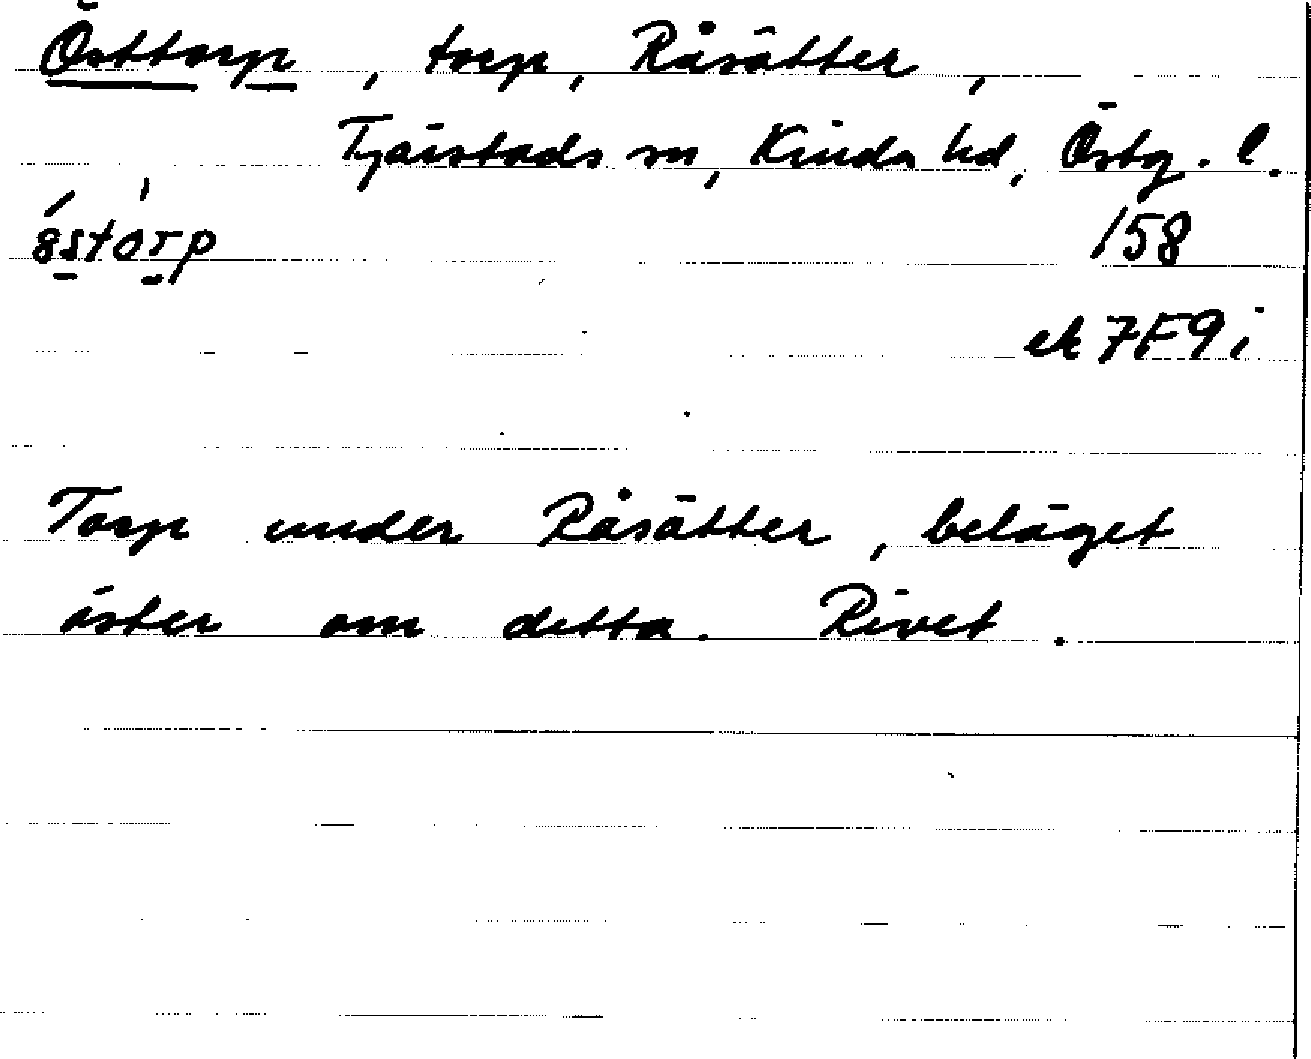 Östtorp, torp, Råsätter,
Tjärstads sn, Kinda hd, Östg. l.
östorp 158
ek 7F9i
Torp under Råsätter, beläget
öster om detta. Rivet.